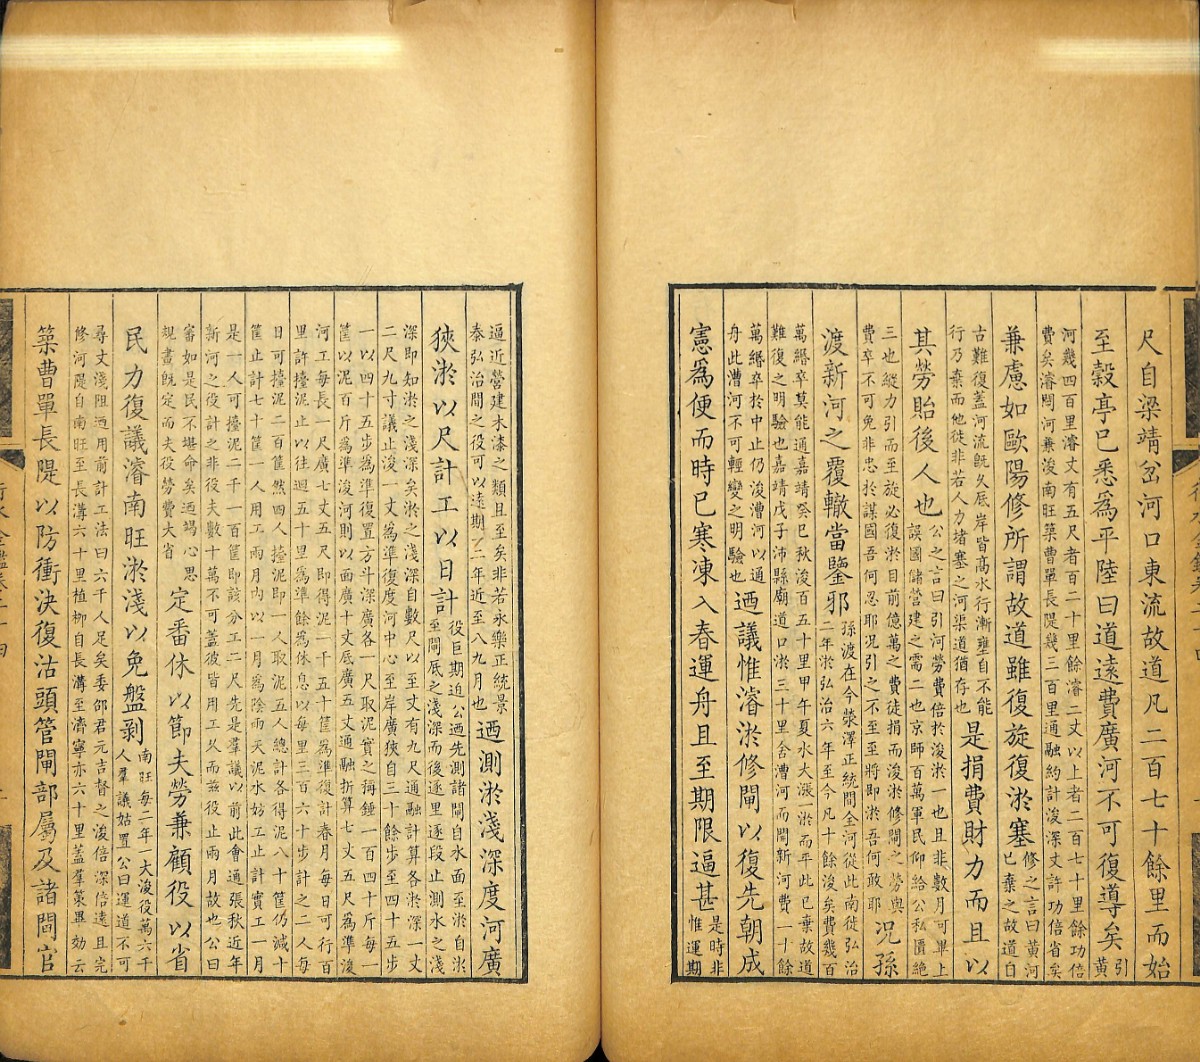 尺自梁靖岔河口東流故道凡二百七十餘里而始
至穀亭已悉為平陸曰道遠費廣河不可復導矣引
黃
河幾四百里濬丈有五尺者百二十里餘濬二丈以上者二百七十里餘功倍
費矣濬閘河兼浚南旺築曹單長隄幾三百里通融約計浚深丈許功倍省矣
兼慮如歐陽修所謂故道雖復旋復淤塞修之言曰黃河
已棄之故道自
古難復蓋河流既久底岸皆高水行漸壅自不能
行乃棄而他徙非若人力堵塞之河渠道猶存也是捐費財力而且以
其勞貽後人也公之言曰引河勞費倍於浚淤一也且非數月可畢上
誤國儲營建之需二也京師百萬軍民仰給公私匱絕
三也縱力引而至旋必復淤目前億萬之費徒捐而浚淤修閘之勞與
費卒不可免非忠於謀國吾何忍耶况引之不至至將即淤吾何敢耶况孫
渡新河之覆轍當鑒邪孫渡在今滎澤正統間全河從此南徙弘治
二年淤弘治六年至今凡十餘浚矣費幾百
萬緡卒莫能通嘉靖癸巳秋浚百五十里甲午夏水大漲一淤而平此已棄故道
難復之明驗也嘉靖戊子沛縣廟道口淤三十里舍漕河而開新河費一十餘
萬緡卒於中止仍浚漕河以通
舟此漕河不可輕變之明驗也迺議惟濬淤修閘以復先朝成
憲為便而時已寒凍入春運舟且至期限逼甚是時非
惟運期
逼近營建木漆之類且至矣非若永樂正統景
泰弘治間之役可以遠期乙二年近至八九月也迺測淤淺深度河廣
狹淤以尺計工以日計役巨期迫公迺先測諸閘自水面至淤自淤
至閘底之淺深而後逐里逐段止測水之淺
深即知淤之淺深矣淤之淺深自數尺以至丈有九尺通融計算各淤深一丈
二尺九寸議止浚一丈為準復度河中心至岸廣狹自三十餘步至四十五步
一以四十五步為準復置方斗深廣各一尺取泥實之稱錘一百四十斤每一
筐以泥百斤為準浚河則以面廣十丈底廣五丈通融折算七丈五尺為準浚
河工每長一尺廣七丈五尺即得泥一千五十筐為準復計春月每日可行百
里許擡泥止以往廻五十里為準餘為休息以每里三百六十步計之二人每
日可擡泥二百筐然四人擡泥即一人取泥五人總計各得泥八十筐仍減十
筐止計七十筐一人用工兩月內以一月為陰雨天泥水妨工止計實工一月
是一人可擡泥二千一百筐即該分工二尺先是羣議以前此會通張秋近年
新河之役計之非役夫數十萬不可蓋彼皆用工久而茲役止兩月故也公曰
審如是民不堪命矣迺竭心思
規畫既定而夫役勞費大省定番休以節夫勞兼顧役以省
民力復議濬南旺淤淺以免盤剥南旺每二年一大浚役萬六千
人羣議姑置公曰運道不可
尋丈淺阻迺用前計工法曰六千人足矣委邵君元吉督之浚倍深倍遠且完
修河隄自南旺至長溝六十里植柳自長溝至濟寧亦六十里蓋羣策畢効云
築曹單長隄以防衝決復沽頭管閘部屬及諸閘官